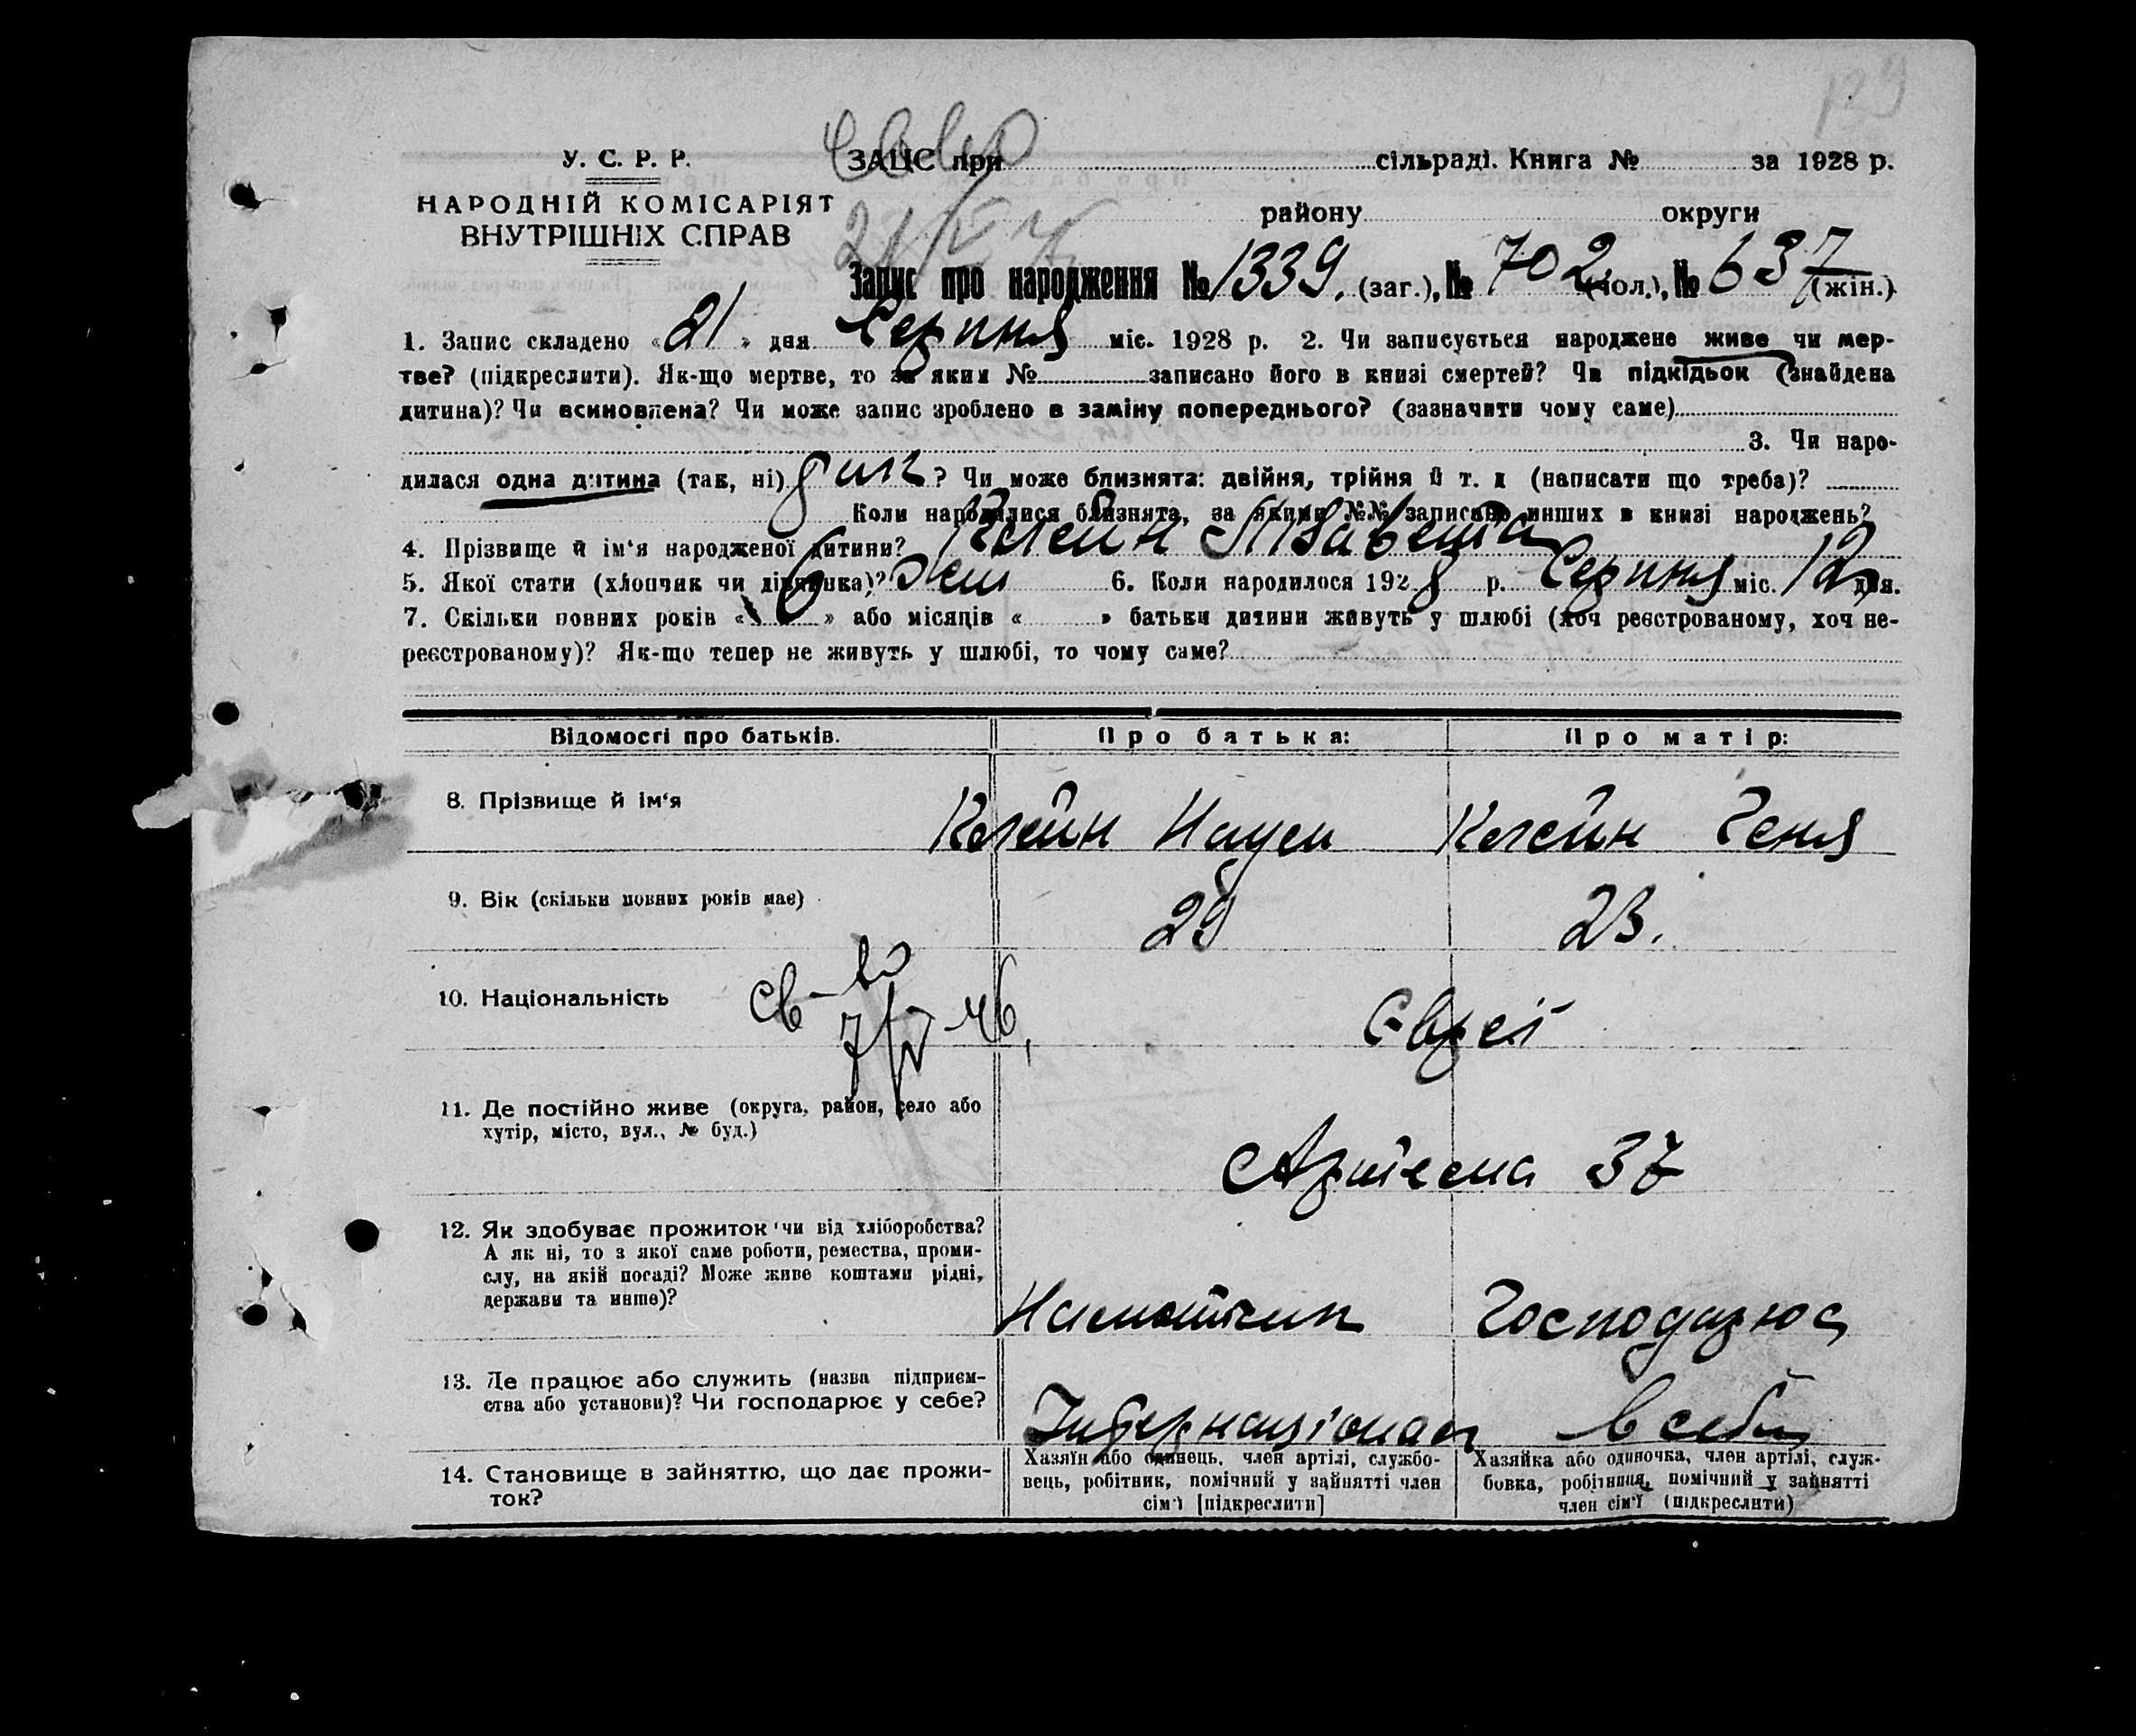 139
У. С. Р. Р.
НАРОДНІЙ КОМІСАРІЯТ
ВНУТРІШНІХ СПРАВ
ЗАЦС при сільраді. Книга № за 1928 р.
району округи
Запис про народження № 1339. (заг.), № 702 (чол.), № 637 (жін.)
1. Запис складено « 21 » дня Серпня міс. 1928 р. 2. Чи записується народжене живе чи мер-
тве? (підкреслити). Як-що мертве, то за яким № записано його в книзі смертей? Чи підкідьок (знайдена
дитина)? Чи всиновлена? Чи може запис зроблено в заміну попереднього? (зазначити чому саме)
3. Чи наро-
дилася одна дитина (так, ні) ? Чи може близнята: двійня, трійня й т. д (написати що треба)?
Коли народилися близнята, за якими №№ записано инших в книзі народжень?
4. Прізвище й ім'я народженої дитини? Клейн
5. Якої стати (хлопчик чи дівчинка)? Жен 6. Коли народилося 1928 р. Серпня міс. 12 дня.
7. Скільки повних років « 6 » або місяців « » батьки дитини живуть у шлюбі (хоч реєстрованому, хоч не-
реєстрованому)? Як-що тепер не живуть у шлюбі, то чому саме?
Відомості про батьків. Про батька: Про матір:
8. Прізвище й ім'я Клейн Наум Клейн Геня
9. Вік (скільки повних років має) 29 23.
10. Національність св-во Євреї
7/V-46,
11. Де постійно живе (округа, район, село або
хутір, місто, вул., № буд.)
Артема 37
12. Як здобуває прожиток чи від хліборобства?
А як ні, то з якої саме роботи, ремества, проми-
слу, на якій посаді? Може живе коштами рідні,
держави та инше)?
Господарює
13. Де працює або служить (назва підприєм-
ства або установи)? Чи господарює у себе?
Інтернаціонал в себе
14. Становище в зайняттю, що дає прожи-
ток?
Хазяїн або одинець, член артілі, службо-
вець, робітник, помічний у зайнятті член
сім'ї [підкреслити]
Хазяйка або одиночка, член артілі, служ-
бовка, робітниця, помічний у зайнятті
член сім'ї (підкреслити)